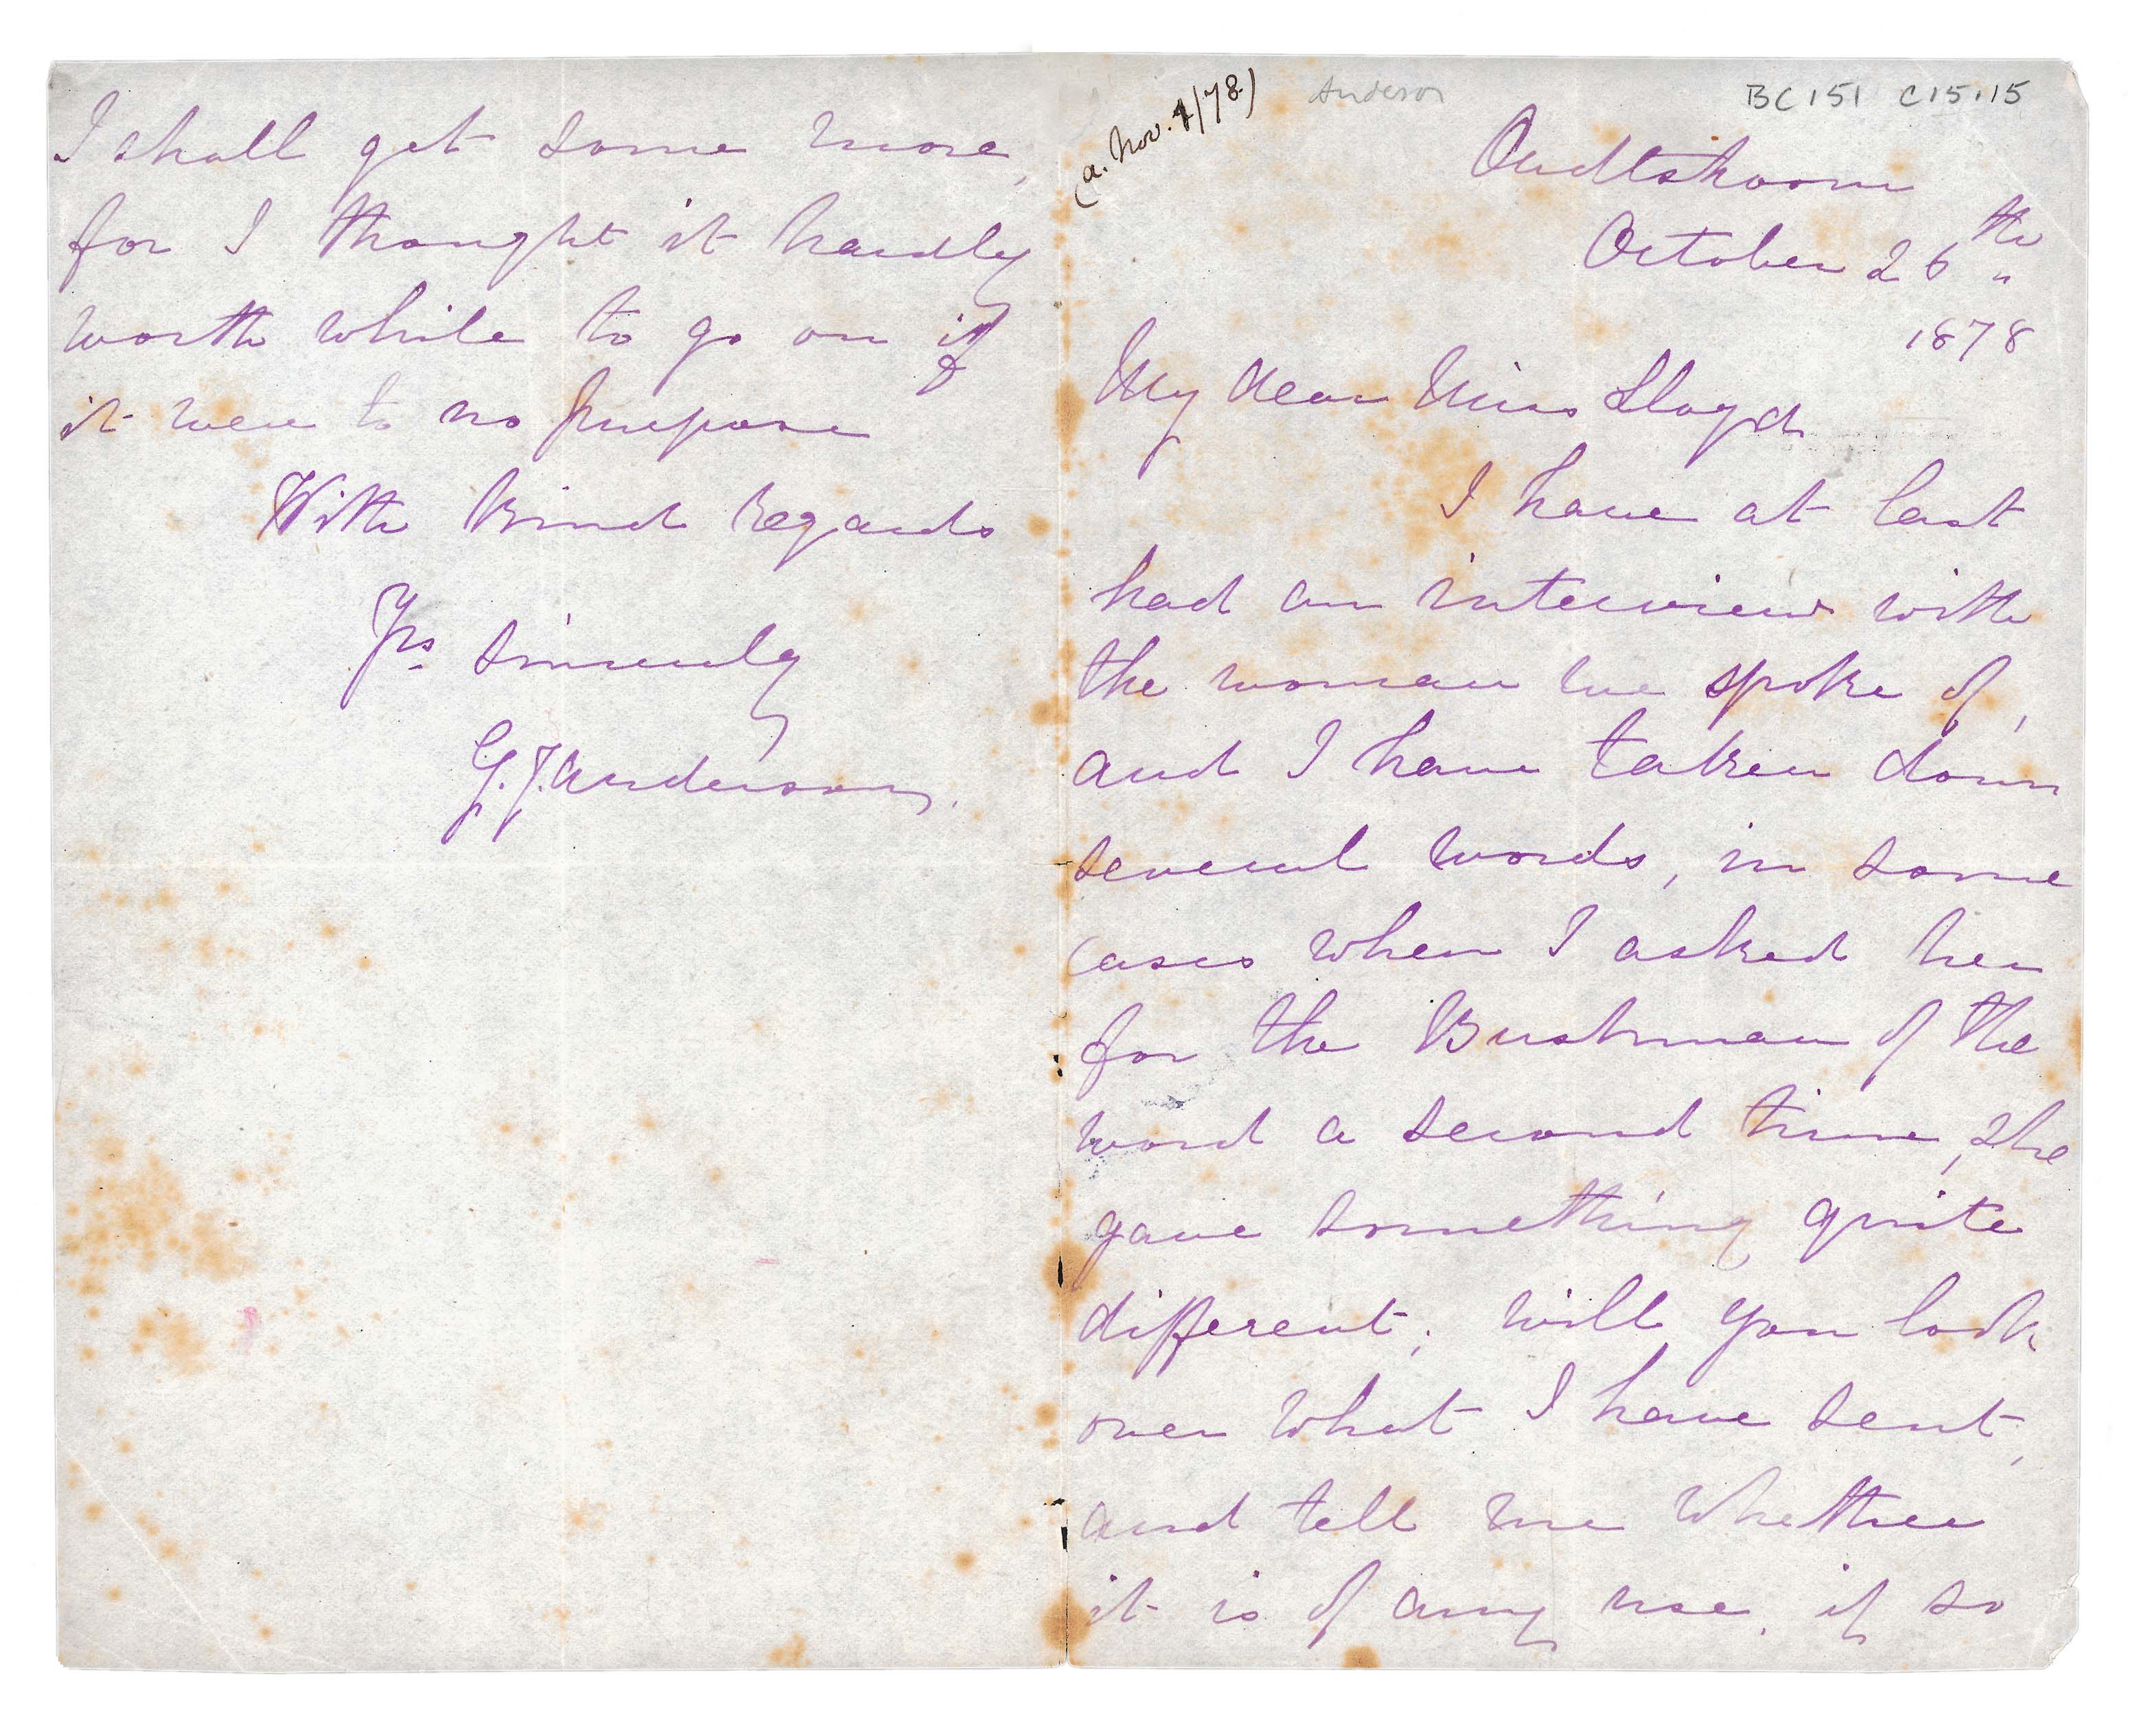 (a. Nov. 4/78)
Anderson
BC151 C15.15
Oudtshoorn
October 26th
1878
My dear Miss Lloyd
I have at last
had an interview with
the woman we spoke of,
and I have taken down
several words, in some
cases when I asked her
for the Bushman of the
word a second time, she
gave something quite
different; will you look
over what I have sent,
and tell me whether
it is of any use, if so
I shall get some more,
for I thought it hardly
worth while to go on if
it were to no purpose
With kind regards
Yrs sincerely
G.J. Anderson.